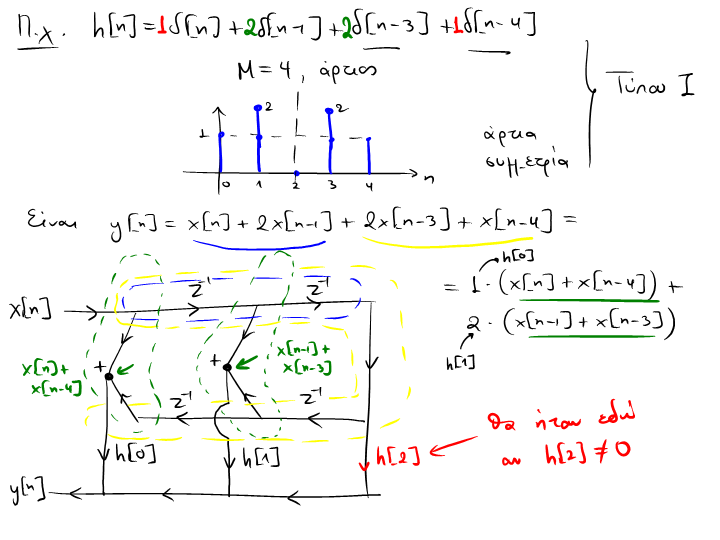 π.χ. h[n] = 1δ[n] + 2δ[n-1] + 2δ[n-3] + 1δ[n-4]
M = 4, άρτιος
Τύπου I
2 2
1
άρτια
συμμετρία
0 1 2 3 4 n
Είναι y[n] = x[n] + 2x[n-1] + 2x[n-3] + x[n-4] =
h[0]
= 1 · (x[n] + x[n-4]) +
2 · (x[n-1] + x[n-3])
h[1]
x[n] z⁻¹ z⁻¹
x[n] + x[n-4] + + x[n-1] + x[n-3]
z⁻¹ z⁻¹
h[0] h[1] h[2] θα ήταν εδώ
αν h[2] ≠ 0
y[n]